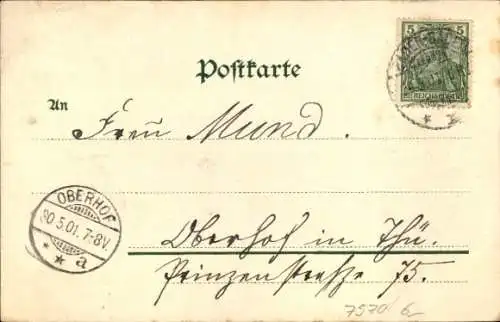 5
REICHSPOST
Postkarte
An
Frau Mund.
OBERHOF
30.5.01. 7-8V.
* * a
Oberhof in Thü.
Prinzenstrasse 75.
7570 6-